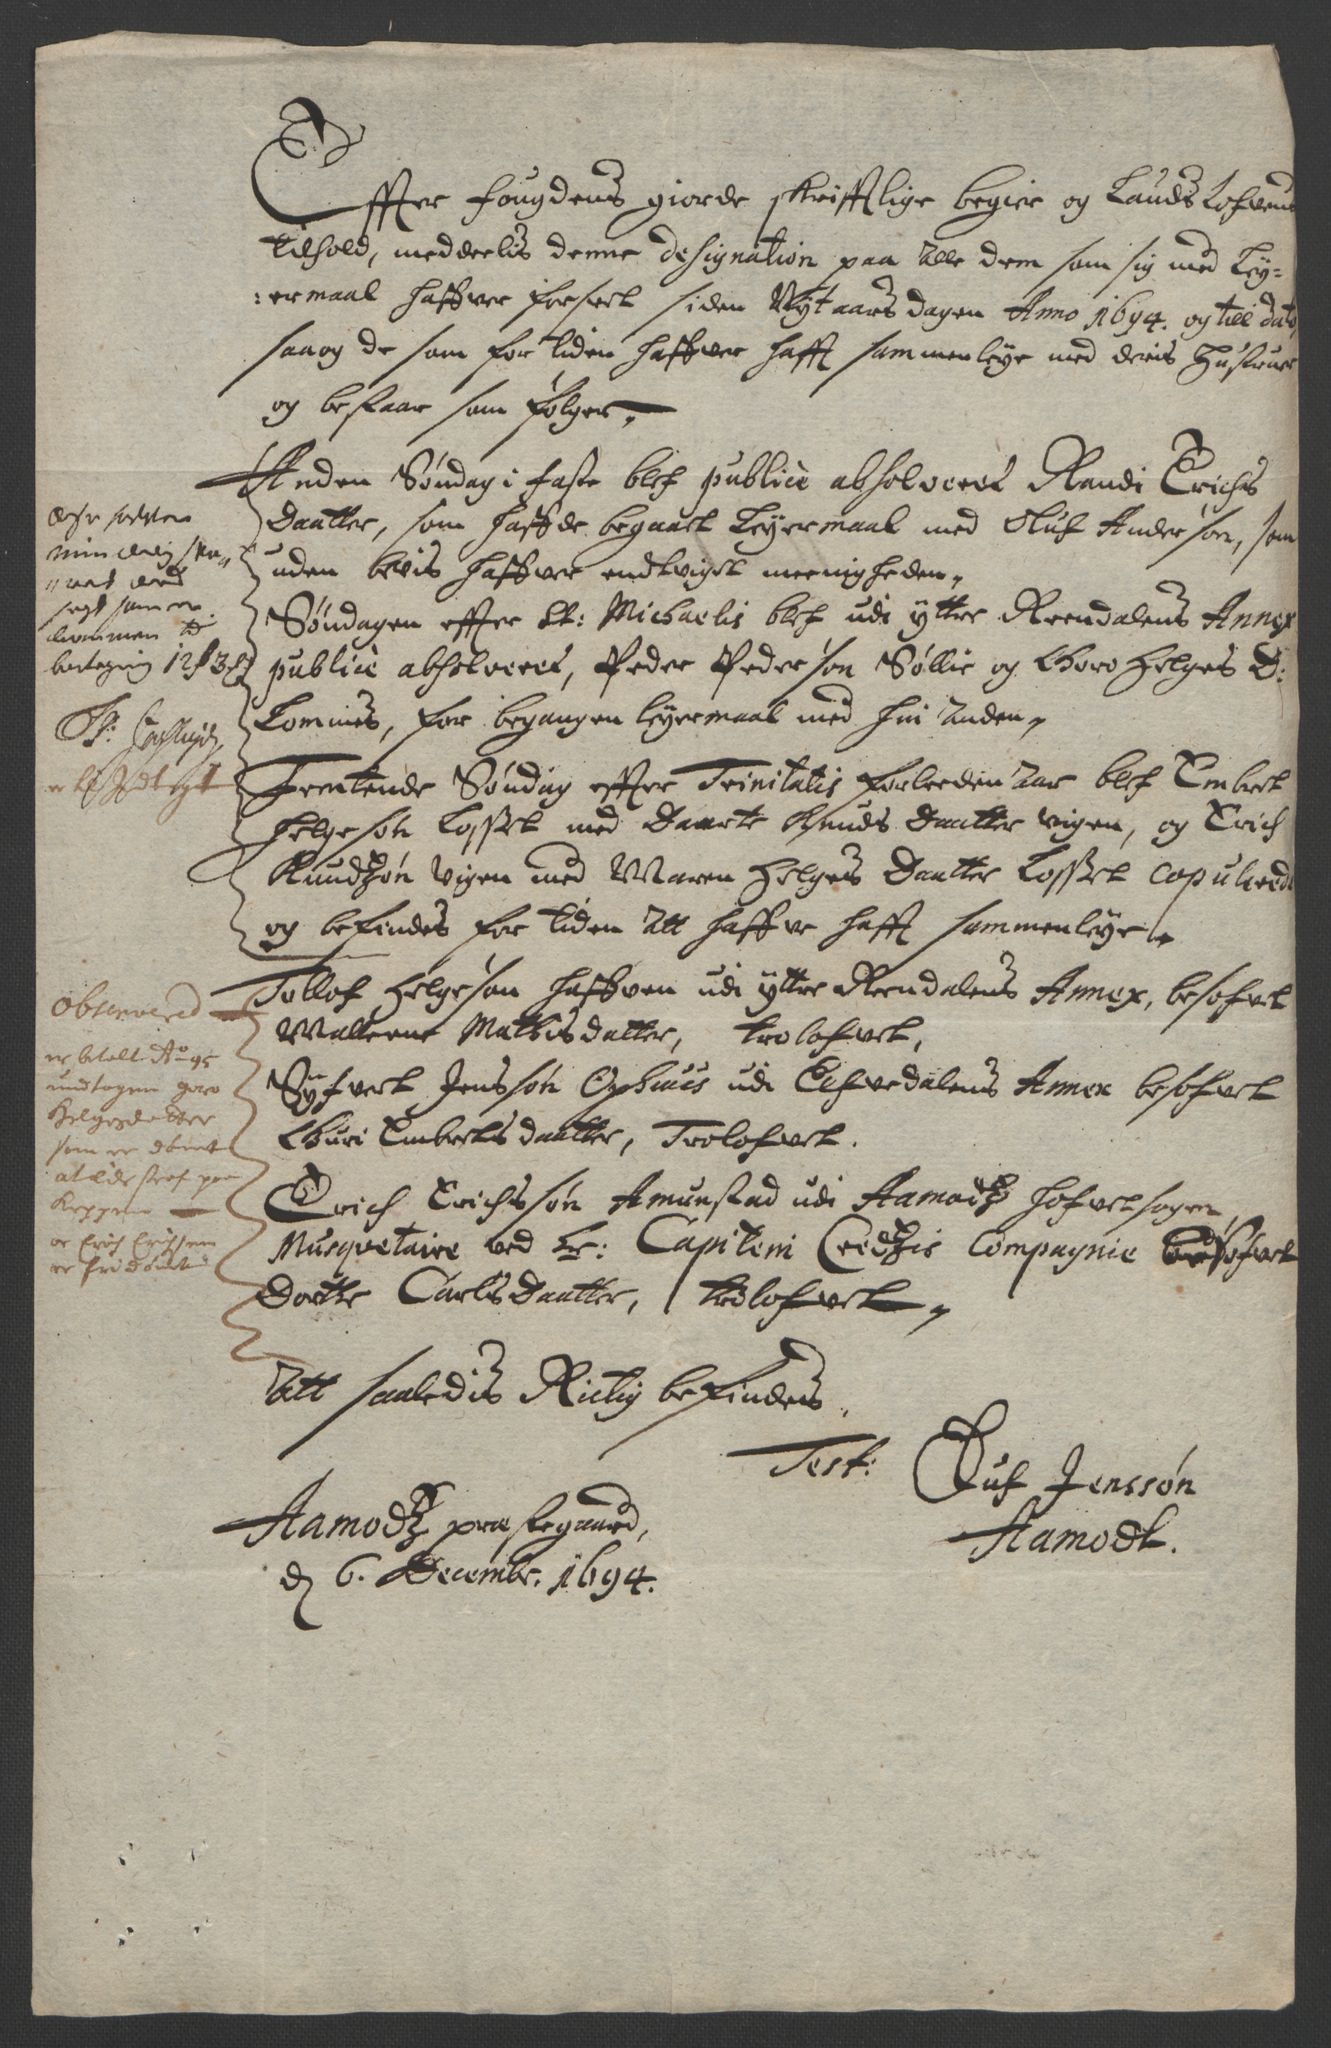 Effter fougdens giorde skrifftlige begier og Lands Lofvens
tilhold, meddeelis denne designation paa alle dem som sig med Ley=
:ermaal haffver forseet siden Nytaarsdagen Anno 1694. og till dato
saa og de som for tiden haffver hafft sammenleye med deris Hustruer
og bestaar som følger.
Anden Søndag i faste blef publicè absolveret Randi Erichs
Daatter, som haffde begaaet Leyermaal med Oluf Anderson, som
uden beviis haffver endtviget meenigheden.
Søndagen effter St: Michaelis blef udi ytter Rendalens Annex
publicè absolveret, Peder Pederson Søllie og Goro Helges D:
Lomnes, for begangen leyermaal med hin anden.
Femtende Søndag effter Trinitatis forleeden aar blef Embret
Helgesøn Losset med Daarte Knuds Daatter vigen, og Erich
Knudzøn vigen med Maren Helges Daatter Losset copuleret
og befindes for tiden att haffve hafft sammenleye.
Tollof Helgesøn haffven udi ytter Rendalens Annex, besofvet
Malene Mathisdatter, trolofvet,
Syfvert Jenssøn Ophuus udi Elfvedalens Annex besofvet
Guri Embretsdaatter, Trolofvet.
Erich Erichssøn Amunstad udi Aamodtz hofvetsogn,
Musquetaire ved Hr: Capitein Creidtzis Compagnie besofvet
Dorthe Carlsdaatter, trolofvet.
Att saaledis Rictig befindes,
Test: Oluf Jenssøn
Aamodt.
Aamodtz præstegaard,
d 6. Decembr. 1694.
12 3
Observered
er betalt Ao 95
undtagen goro
Helgesdatter
som er dømt
at lide straf paa
Kroppen
oc Erich Erichssen
er fridømt